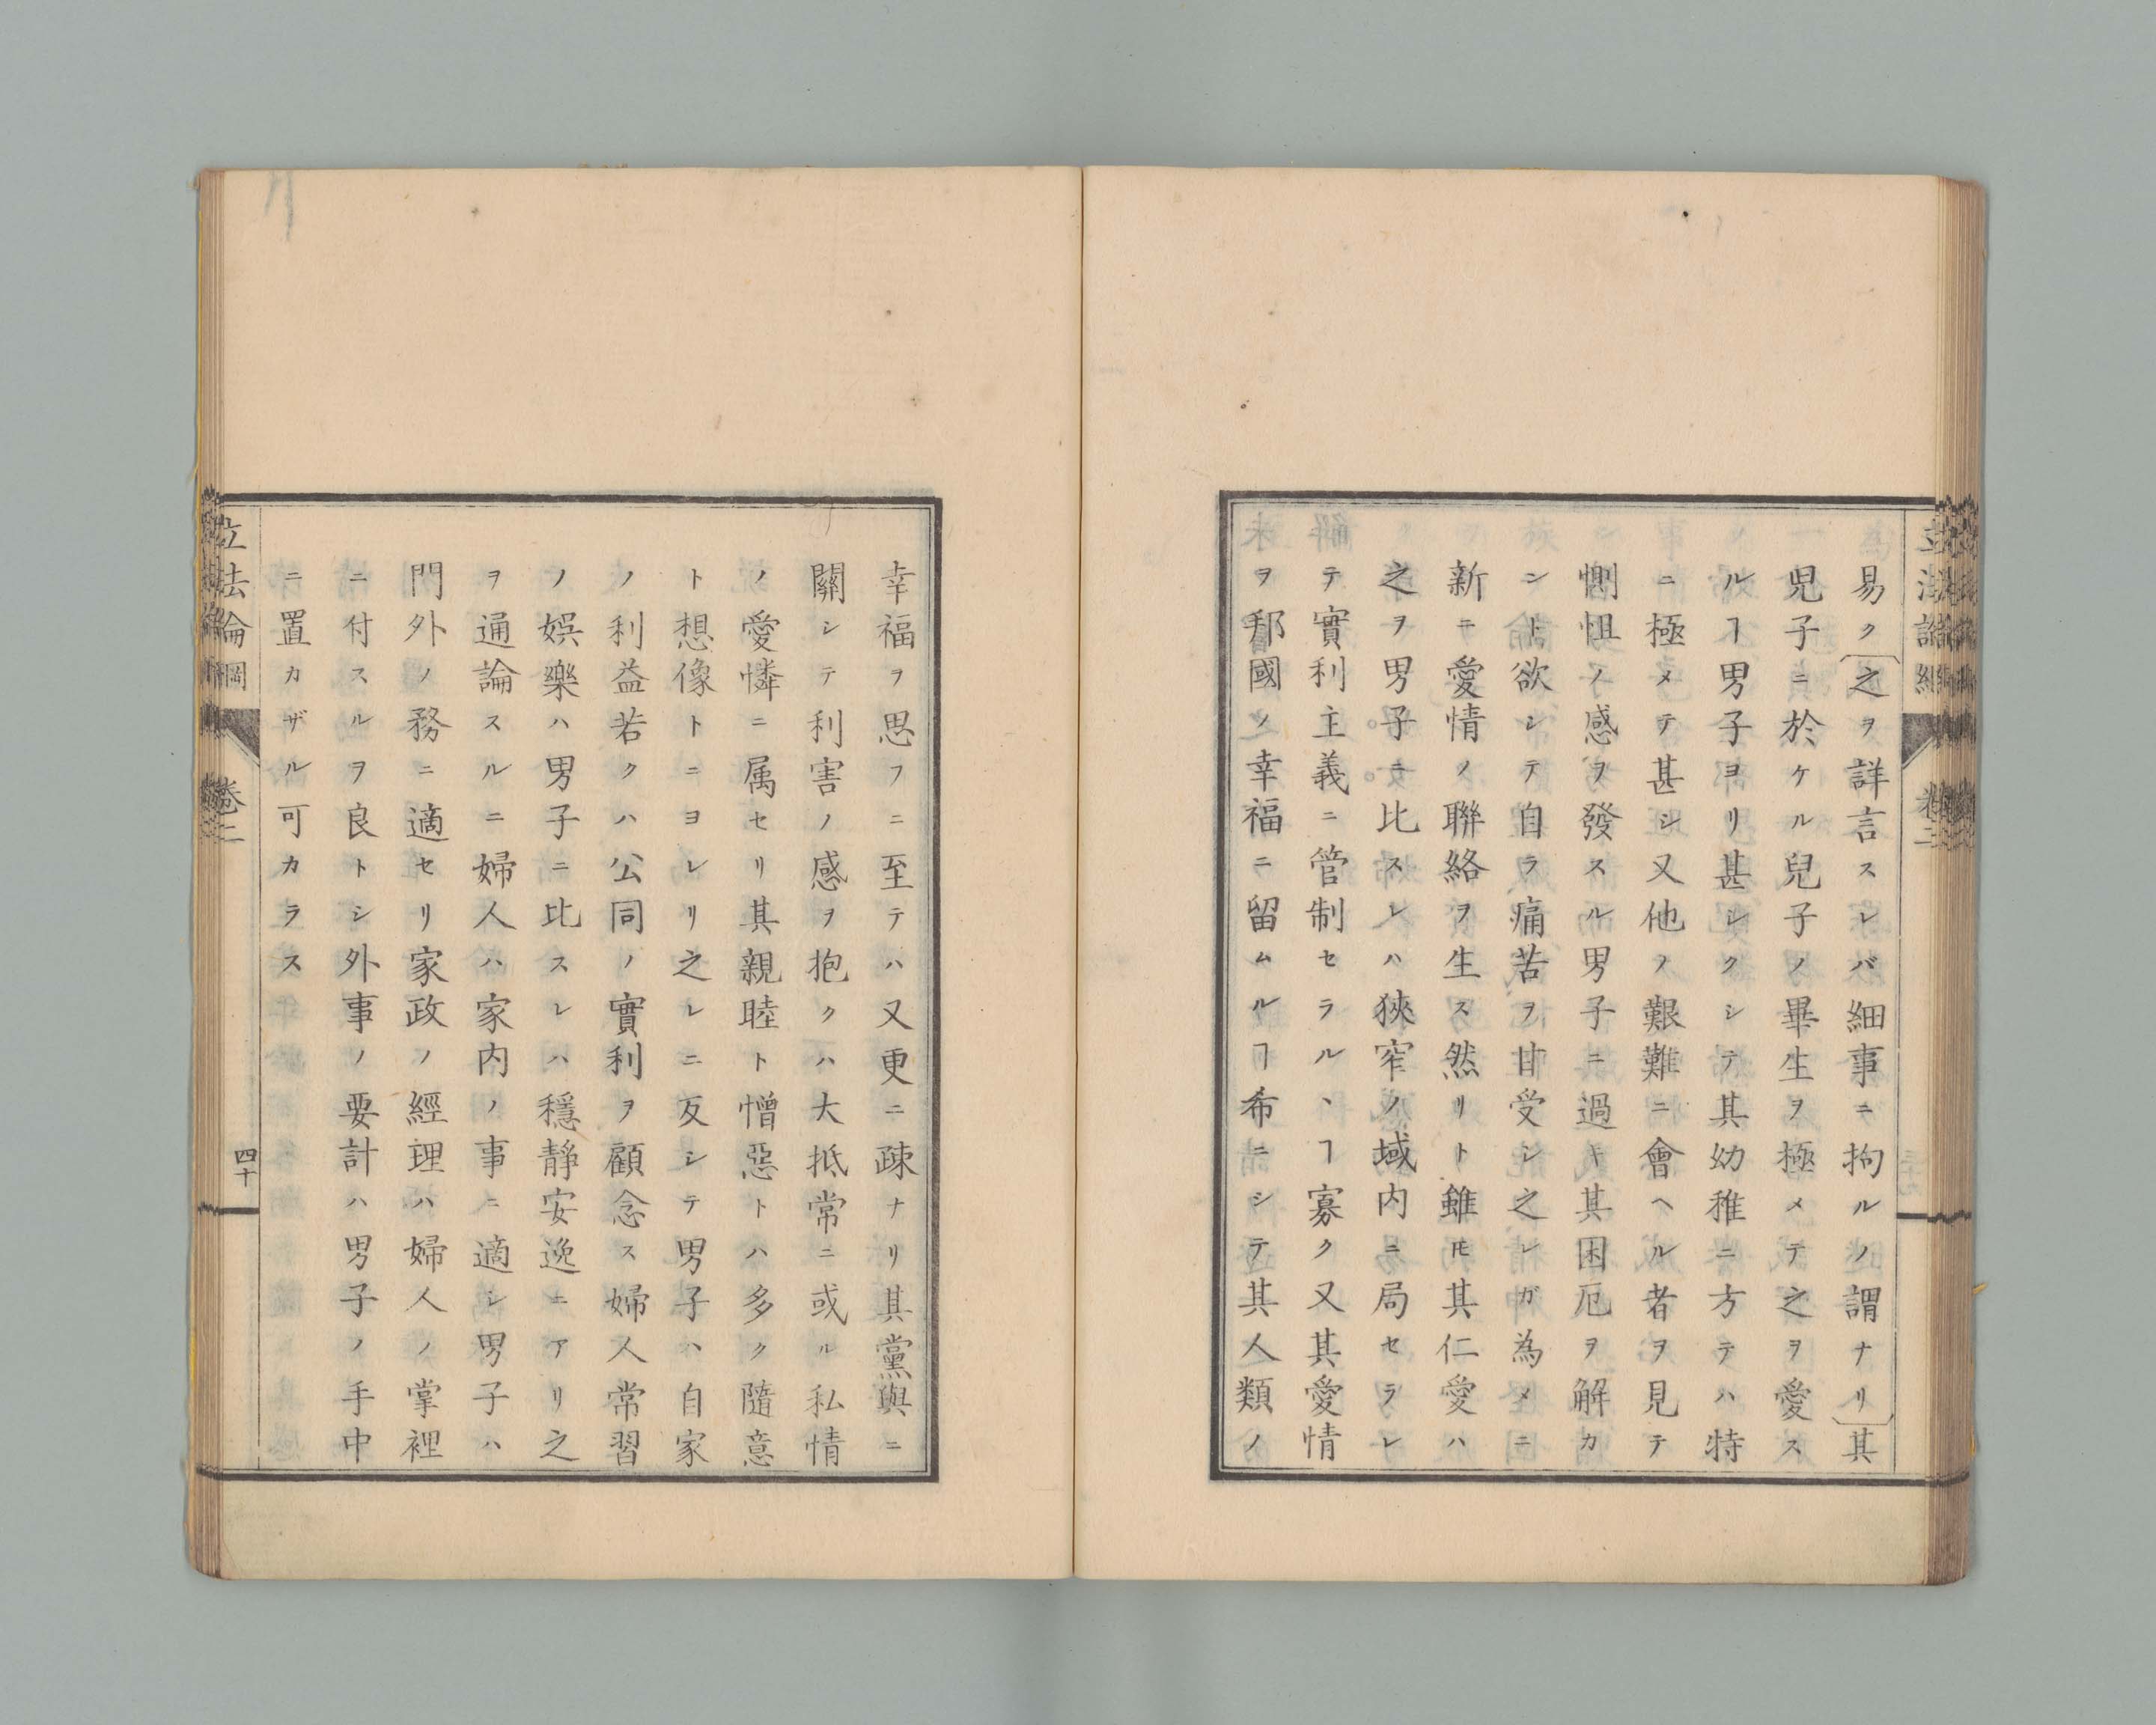 易ク〔之ヲ詳言スレバ細事ニ拘ルノ謂ナリ〕其
兒子ニ於ケル兒子ノ畢生ヲ極メテ之ヲ愛ス
ルヿ男子ヨリ甚シクシテ其幼稚ニ方テハ特
ニ極メテ甚シ又他ノ艱難ニ會ヘル者ヲ見テ
惻怛ノ感ヲ發スル男子ニ過キ其困厄ヲ解カ
ント欲シテ自ラ痛苦ヲ甘受シ之レガ為メニ
新ニ愛情ノ聯絡ヲ生ス然リト雖𪜈其仁愛ハ
之ヲ男子ニ比スレハ狹窄ノ域内ニ局セラレ
テ實利主義ニ管制セラルヽヿ寡ク又其愛情
ヲ邦國ノ幸福ニ留ムルヿ希ニシテ其人類ノ
幸福ヲ思フニ至テハ又更ニ疎ナリ其黨與ニ
關シテ利害ノ感ヲ抱クハ大抵常ニ或ル私情
ノ愛憐ニ属セリ其親睦ト憎惡トハ多ク隨意
ト想像トニヨレリ之レニ反シテ男子ハ自家
ノ利益若クハ公同ノ實利ヲ顧念ス婦人常習
ノ娯樂ハ男子ニ比スレハ穩靜安逸ニアリ之
ヲ通論スルニ婦人ハ家内ノ事ニ適シ男子ハ
門外ノ務ニ適セリ家政ノ經理ハ婦人ノ掌裡
ニ付スルヲ良トシ外事ノ要計ハ男子ノ手中
ニ置カザル可カラス
立法論綱
卷二
四十